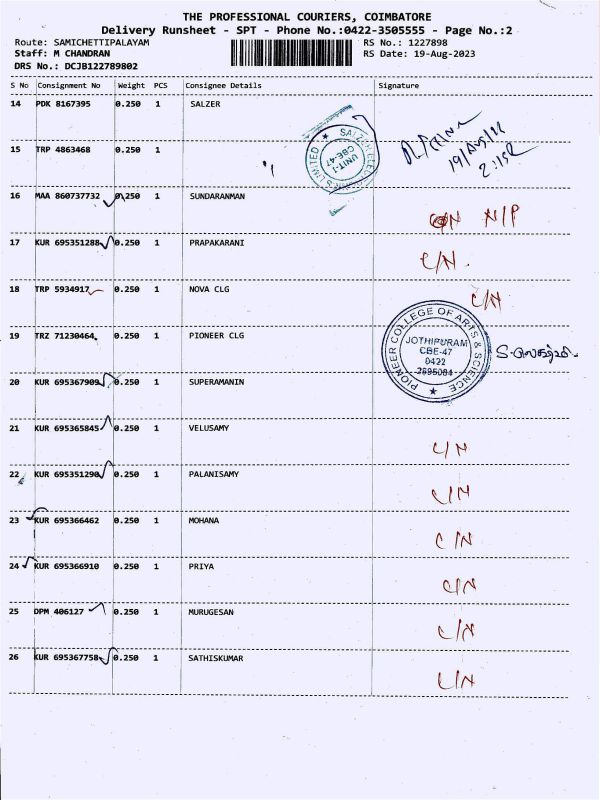 THE PROFESSIONAL COURIERS, COIMBATORE
Delivery Runsheet - SPT - Phone No.:0422-3505555 - Page No.:2
Route: SAMICHETTIPALAYAM RS No.: 1227898
Staff: M CHANDRAN RS Date: 19-Aug-2023
DRS No.: DCJB122789802
S No Consignment No Weight PCS Consignee Details Signature
14 PDK 8167395 0.250 1 SALZER
15 TRP 4863468 0.250 1
SALZER ELECTRONICS LIMITED
UNIT-1
CBE-47
16 MAA 860737732 0.250 1 SUNDARANMAN
C/N N/P
17 KUR 695351288 0.250 1 PRAPAKARANI
C/N.
18 TRP 5934917 0.250 1 NOVA CLG
C/N
19 TRZ 71230464 0.250 1 PIONEER CLG
PIONEER COLLEGE OF ARTS & SCIENCE
JOTHIPURAM
CBE-47
0422
20 KUR 695367909 0.250 1 SUPERAMANIN
21 KUR 695365845 0.250 1 VELUSAMY
C/N
22 KUR 695351290 0.250 1 PALANISAMY
C/N
23 KUR 695366462 0.250 1 MOHANA
C/N
24 KUR 695366910 0.250 1 PRIYA
C/N
25 DPM 406127 0.250 1 MURUGESAN
C/N
26 KUR 695367758 0.250 1 SATHISKUMAR
C/N